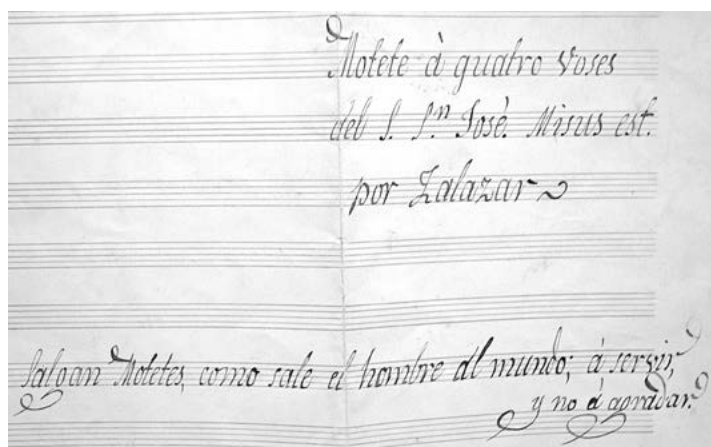 Motete à quatro Voses
del S. S.n José. Misus est.
por Zalazar
Salgan Motetes, como sale el hombre al mundo; á servir,
y no á agradar.